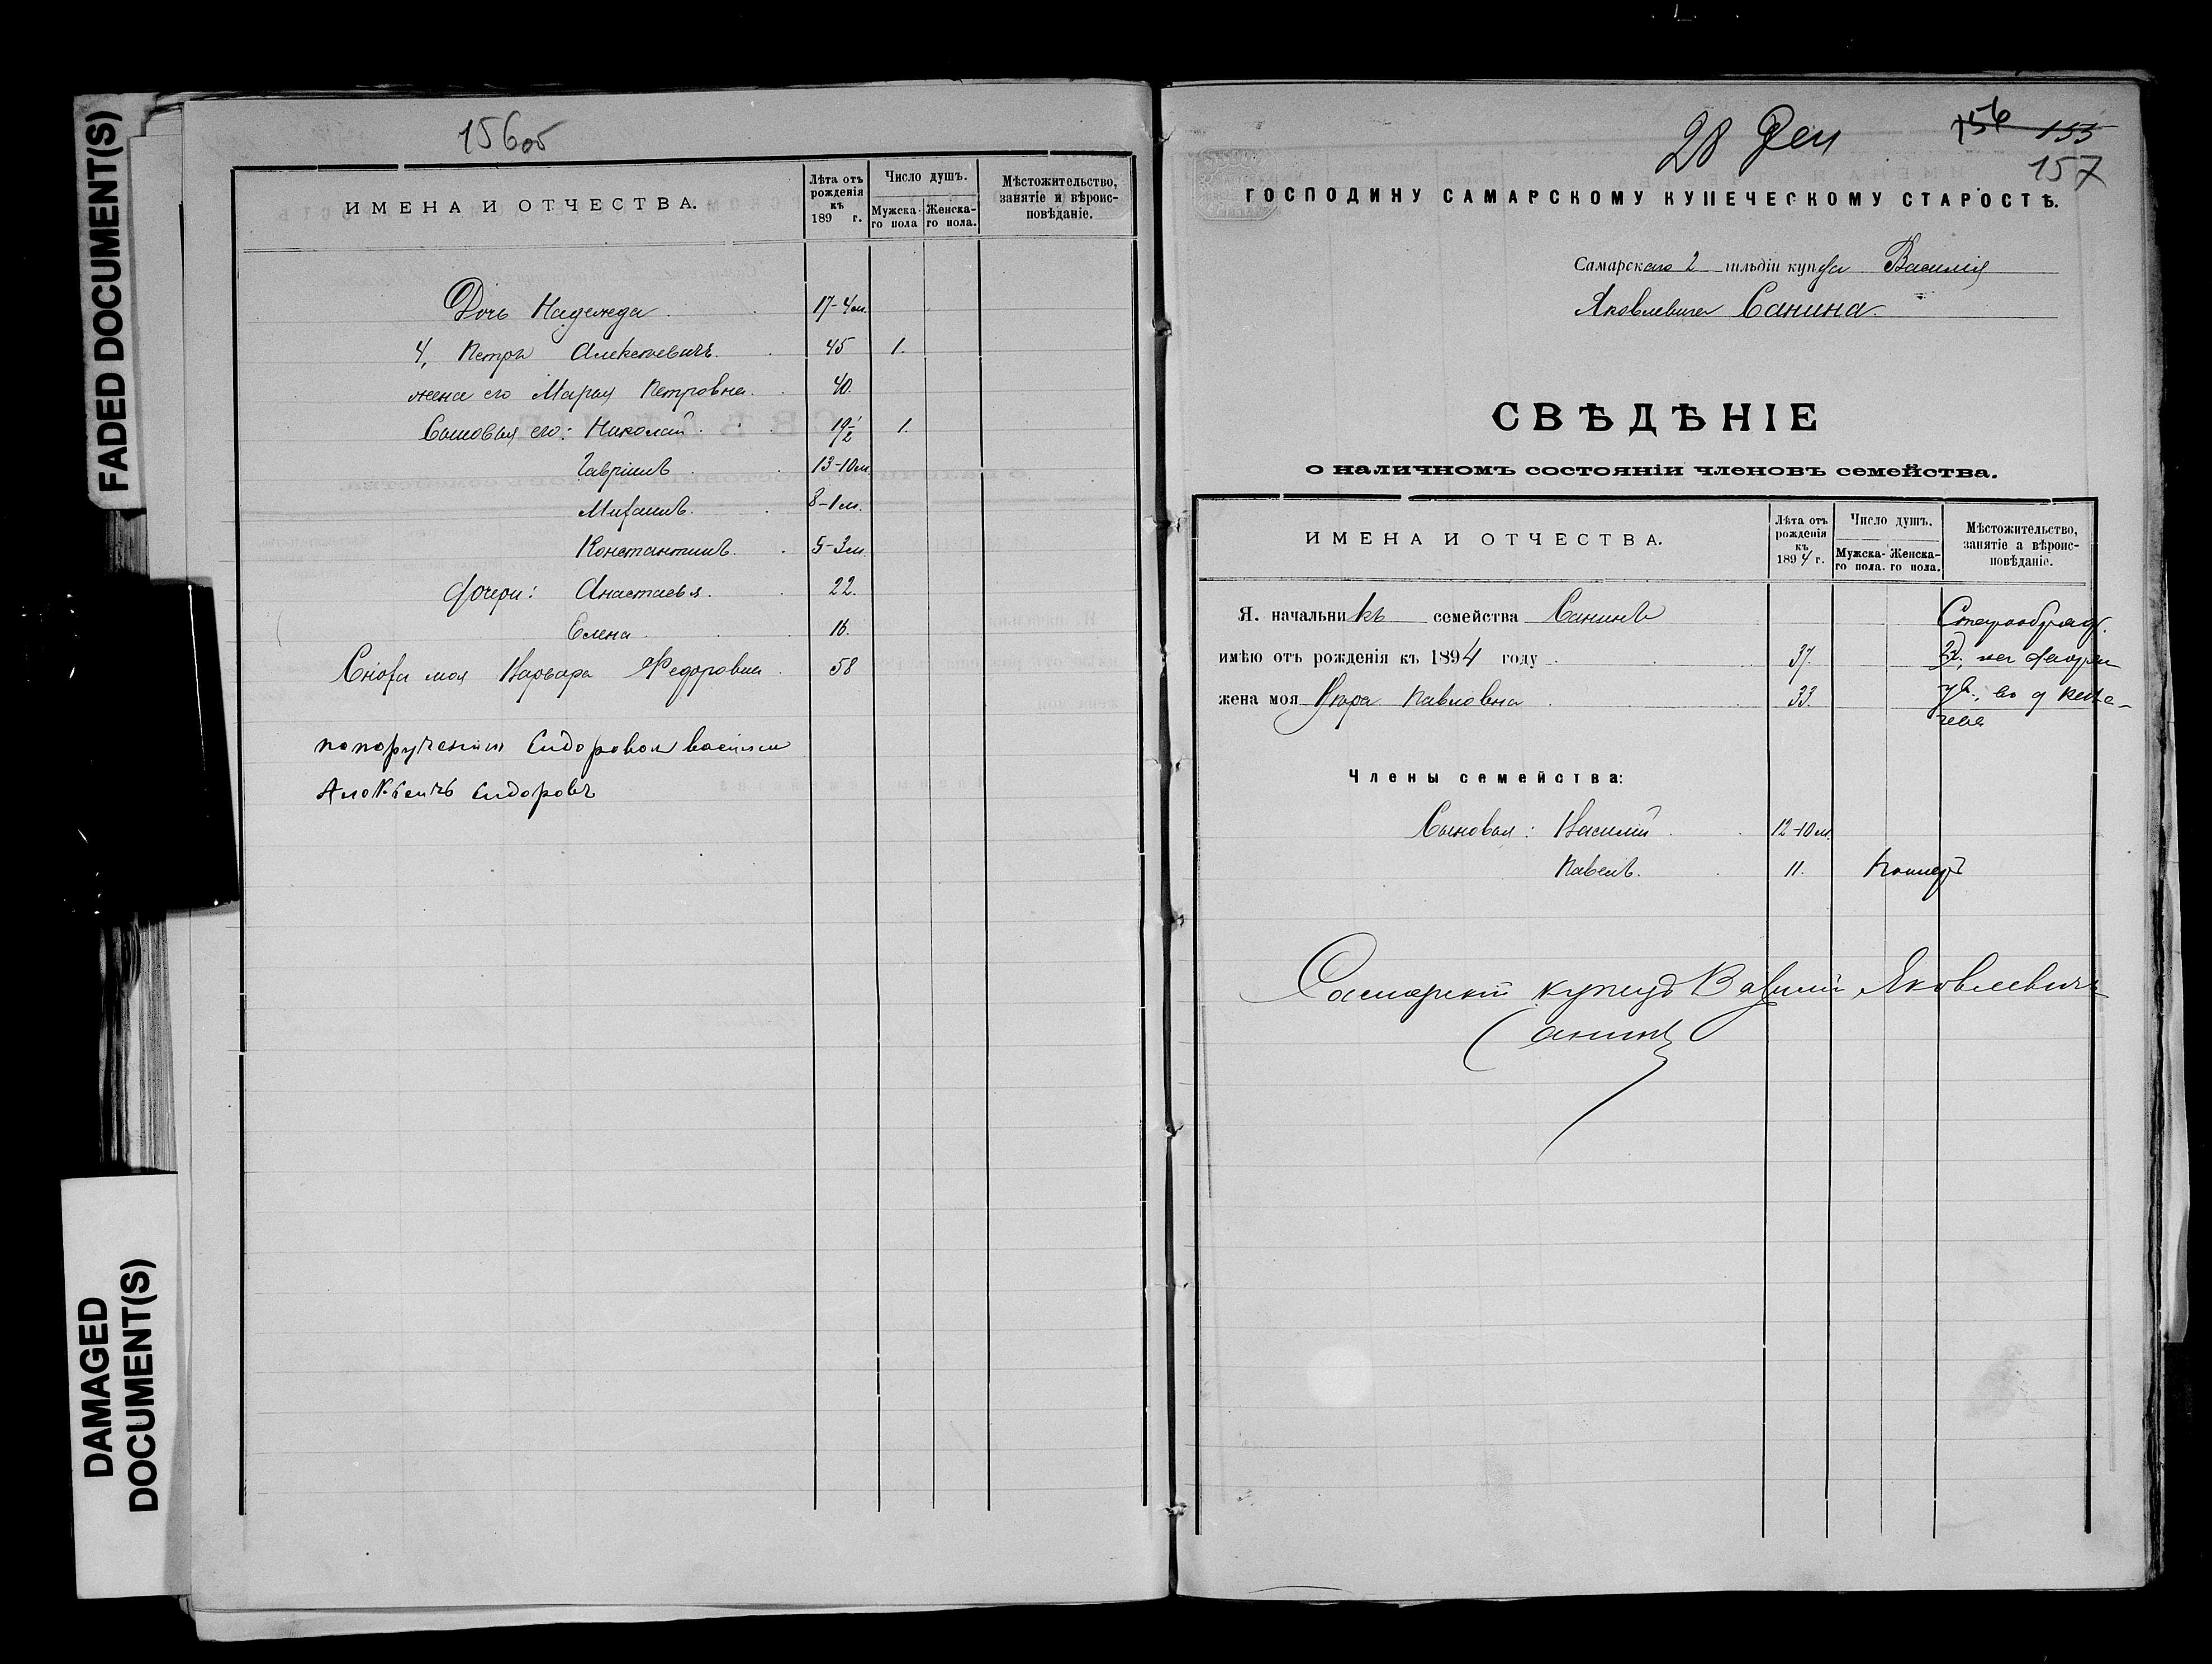 FADED DOCUMENT(S)
DAMAGED
DOCUMENT(S)
156об
ИМЕНА И ОТЧЕСТВА.
Лѣта отъ рожденія къ 189 г.
Число душъ.
Мужска-го пола
Женска-го пола.
Мѣстожительство, занятіе и вѣроис-повѣданіе.
Дочь Надежда . 17-4 м.
4, Петръ Алексѣевичъ. 45 1.
жена его Марья Петровна. 40.
Сыновья его: Николай 19 1/2 1.
Гавріилъ 13-10 м.
Михаилъ. 8-1 м.
Константинъ. 5-3 м.
Дочери: Анастасья. 22.
Елена 16.
Сноха моя Варвара Федоровна 58
по порученію Сидоровой Василій
Алексѣичъ Сидоровъ
28 Дек
156 155
157
ГОСПОДИНУ САМАРСКОМУ КУПЕЧЕСКОМУ СТАРОСТѢ.
Самарскаго 2 гильдіи купца Василія
Яковлевича Санина.
СВѢДѢНІЕ
о наличномъ состояніи членовъ семейства.
ИМЕНА И ОТЧЕСТВА.
Лѣта отъ рожденія къ 1894 г.
Число душъ.
Мужска-го пола.
Женска-го пола.
Мѣстожительство, занятіе а вѣроис-повѣданіе.
Я. начальникъ семейства Санинъ Старообряд.
имѣю отъ рожденія къ 1894 году 37.
жена моя Павловна 33.
Члены семейства:
Сыновья: Василій 12-10 м.
Павелъ. 11.
Самарскій купецъ Василий Яковлевичъ
Санинъ